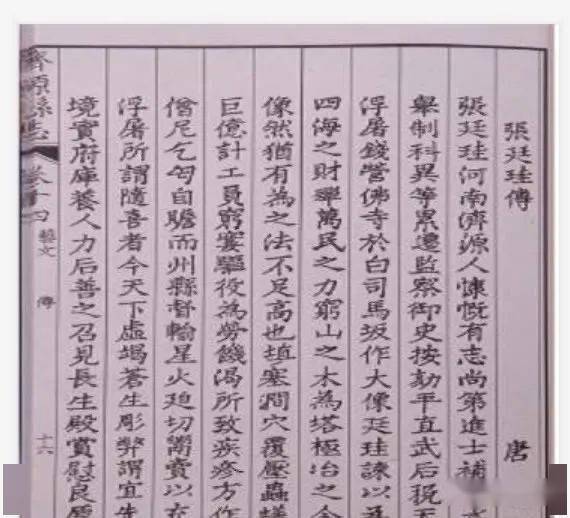 張廷珪傳
唐
張廷珪河南濟源人慷慨有志尚第進士補
舉制科異等累遷監察御史按劾平直武后稅天
浮屠錢營佛寺於白司馬坂作大像廷珪諫以為
四海之財殫萬民之力窮山之木為塔極冶之金
像然猶有為之法不足高也填塞澗穴覆壓蟲蟻
巨億計工員窮窶驅役為勞饑渴所致疾疹方作
僧尼乞匄自贍而州縣督輸星火迫切鬻賣以充
浮屠所謂隨喜者今天下虛竭蒼生彫弊謂宜先
境實府庫養人力后善之召見長生殿賞慰良厚
濟源縣志
卷十四
藝文
傳
十六